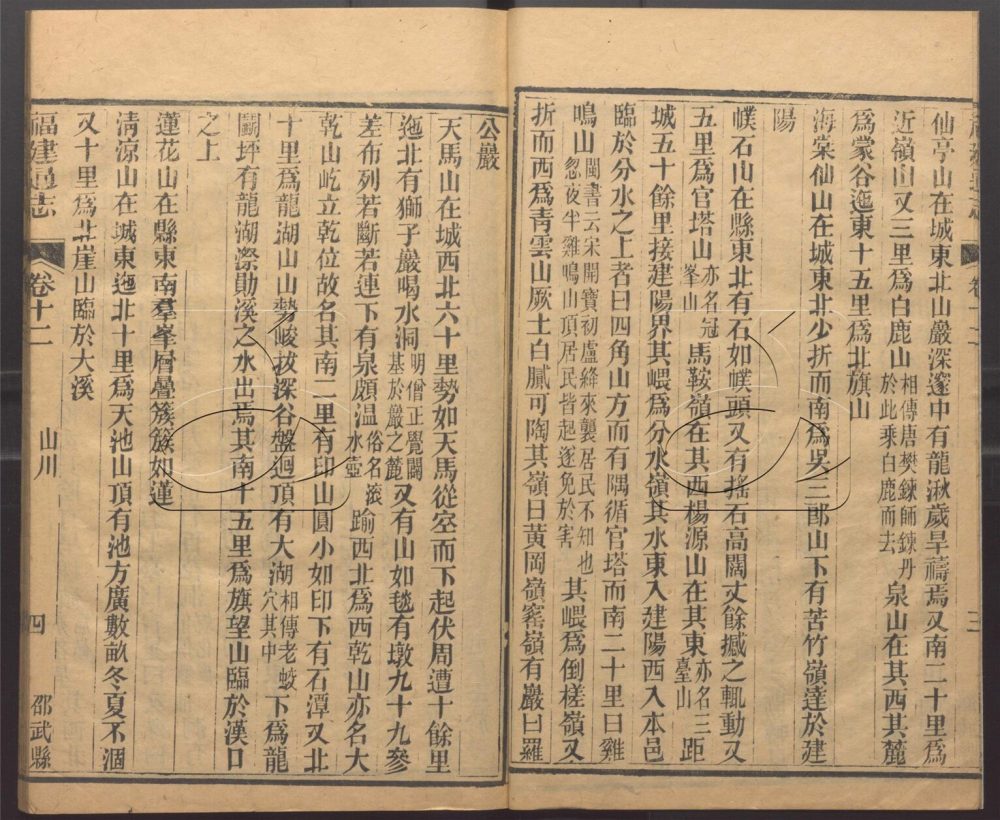 仙亭山在城東北山巖深邃中有龍湫歲旱禱焉又南二十里爲
近嶺山又三里爲白鹿山相傳唐樊鍊師鍊丹於此乘白鹿而去泉山在其西其麓
爲蒙谷迤東十五里爲北旗山
海棠仙山在城東北少折而南爲吳三郎山下有苦竹嶺達於建
陽
幞石山在縣東北有石如幞頭又有搖石高闊丈餘撼之輒動又
五里爲官塔山亦名冠峯山馬鞍嶺在其西楊源山在其東亦名三臺山距
城五十餘里接建陽界其㟪爲分水嶺其水東入建陽西入本邑
臨於分水之上者曰四角山方而有隅循官塔而南二十里曰雞
鳴山閩書云宋開寶初盧絳來襲居民不知也忽夜半雞鳴山頂居民皆起逐免於害其㟪爲倒槎嶺又
折而西爲靑雲山厥土白膩可陶其嶺曰黃岡嶺窰嶺有巖曰羅
三
公巖
天馬山在城西北六十里勢如天馬從空而下起伏周遭十餘里
迤北有獅子巖喝水洞明僧正覺闢基於巖之麓又有山如毬有墩九十九參
差布列若斷若連下有泉頗温俗名滚水壺踰西北爲西乾山亦名大
乾山屹立乾位故名其南二里有印山圓小如印下有石潭又北
十里爲龍湖山山勢峻拔深谷盤迴頂有大湖相傳老蛟穴其中下爲龍
鬭坪有龍湖漈勛溪之水出焉其南十五里爲旗望山臨於漢口
之上
蓮花山在縣東南羣峯層疊簇簇如蓮
淸凉山在城東迤北十里爲天池山頂有池方廣數畝冬夏不涸
又十里爲北崖山臨於大溪
福建通志
卷十二
山川
四
邵武縣